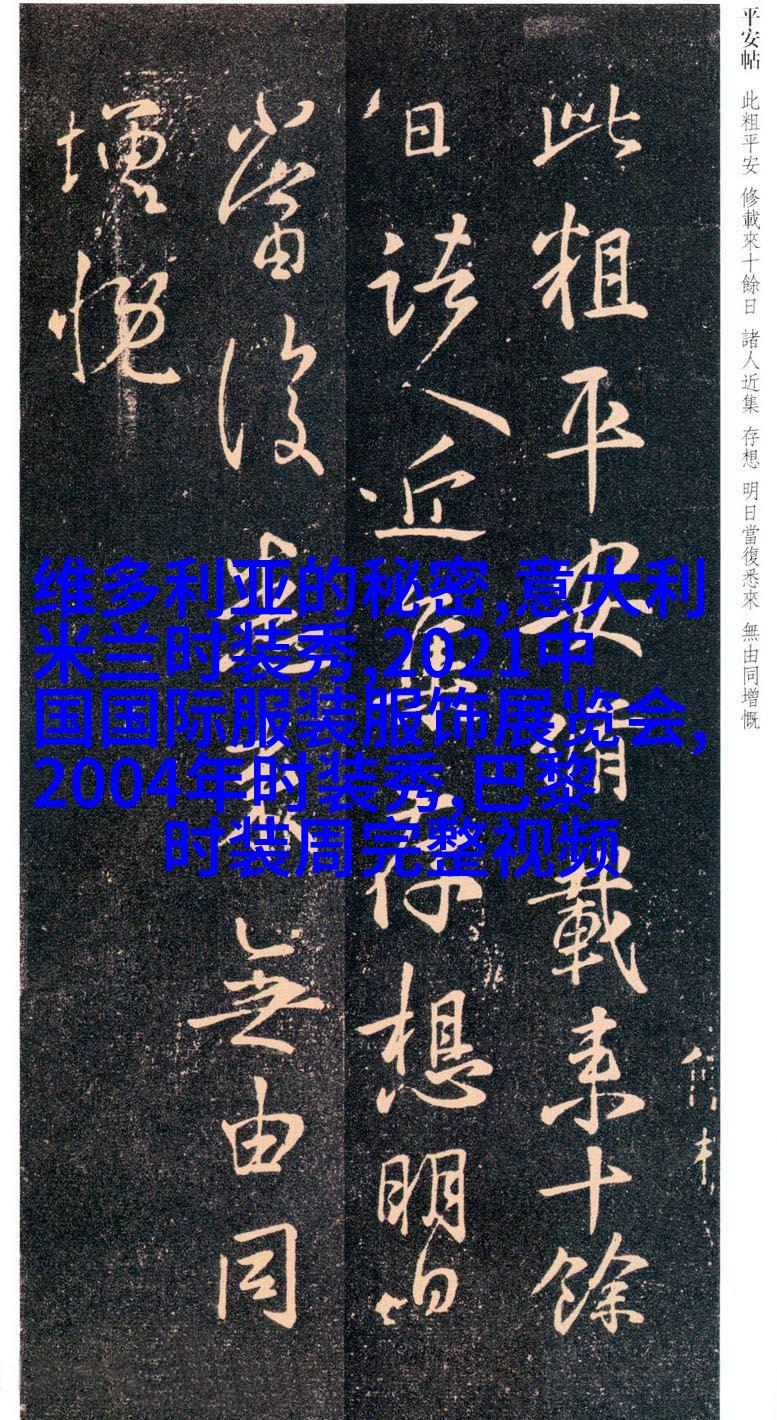 平安帖 此粗平安 修載來十餘日 諸人近集 存想 明日當復悉來 無由同增慨
此粗平安脩載来十餘
日諸人近集存想明日
當復悉来無由同
增慨
维多利亚的秘密,意大利
米兰时装秀,2021中
国国际服装服饰展览会,
2004年时装秀,巴黎
时装周完整视频